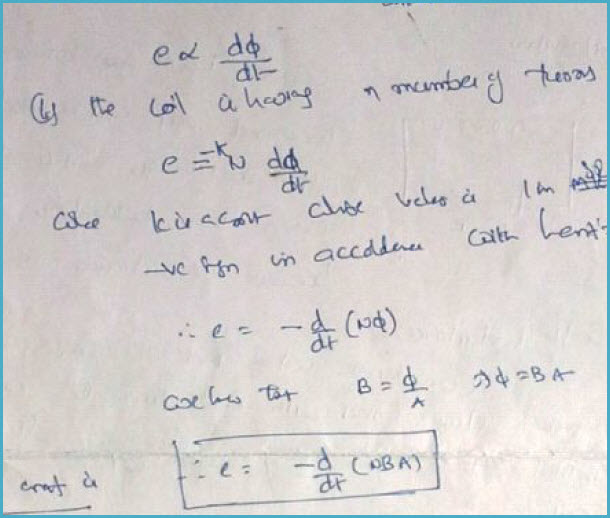 e ∝ dφ/dt
If the coil is having n number of turns
e = -K N dφ/dt
where K is a const whose value is 1 in
-ve sign in accordence with Lenz's
∴ e = - d/dt (Nφ)
we know that B = φ/A ⇒ φ = BA
∴ e = -d/dt (NBA)
is